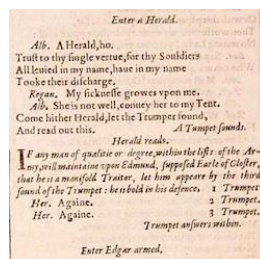 Enter a Herald.
Alb. A Herald, ho.
Trust to thy single vertue, for thy Souldiers
All leuied in my name, haue in my name
Tooke their discharge.
Regan. My sicknesse growes vpon me.
Alb. She is not well, conuey her to my Tent.
Come hither Herald, let the Trumpet sound,
And read out this. A Tumpet sounds.
Herald reads.
IF any man of qualitie or degree, within the lists of the Ar-
my, will maintaine vpon Edmund, supposed Earle of Gloster,
that he is a manifold Traitor, let him appeare by the third
sound of the Trumpet: he is bold in his defence. 1 Trumpet.
Her. Againe. 2 Trumpet.
Her. Againe. 3 Trumpet.
Trumpet answers within.
Enter Edgar armed.